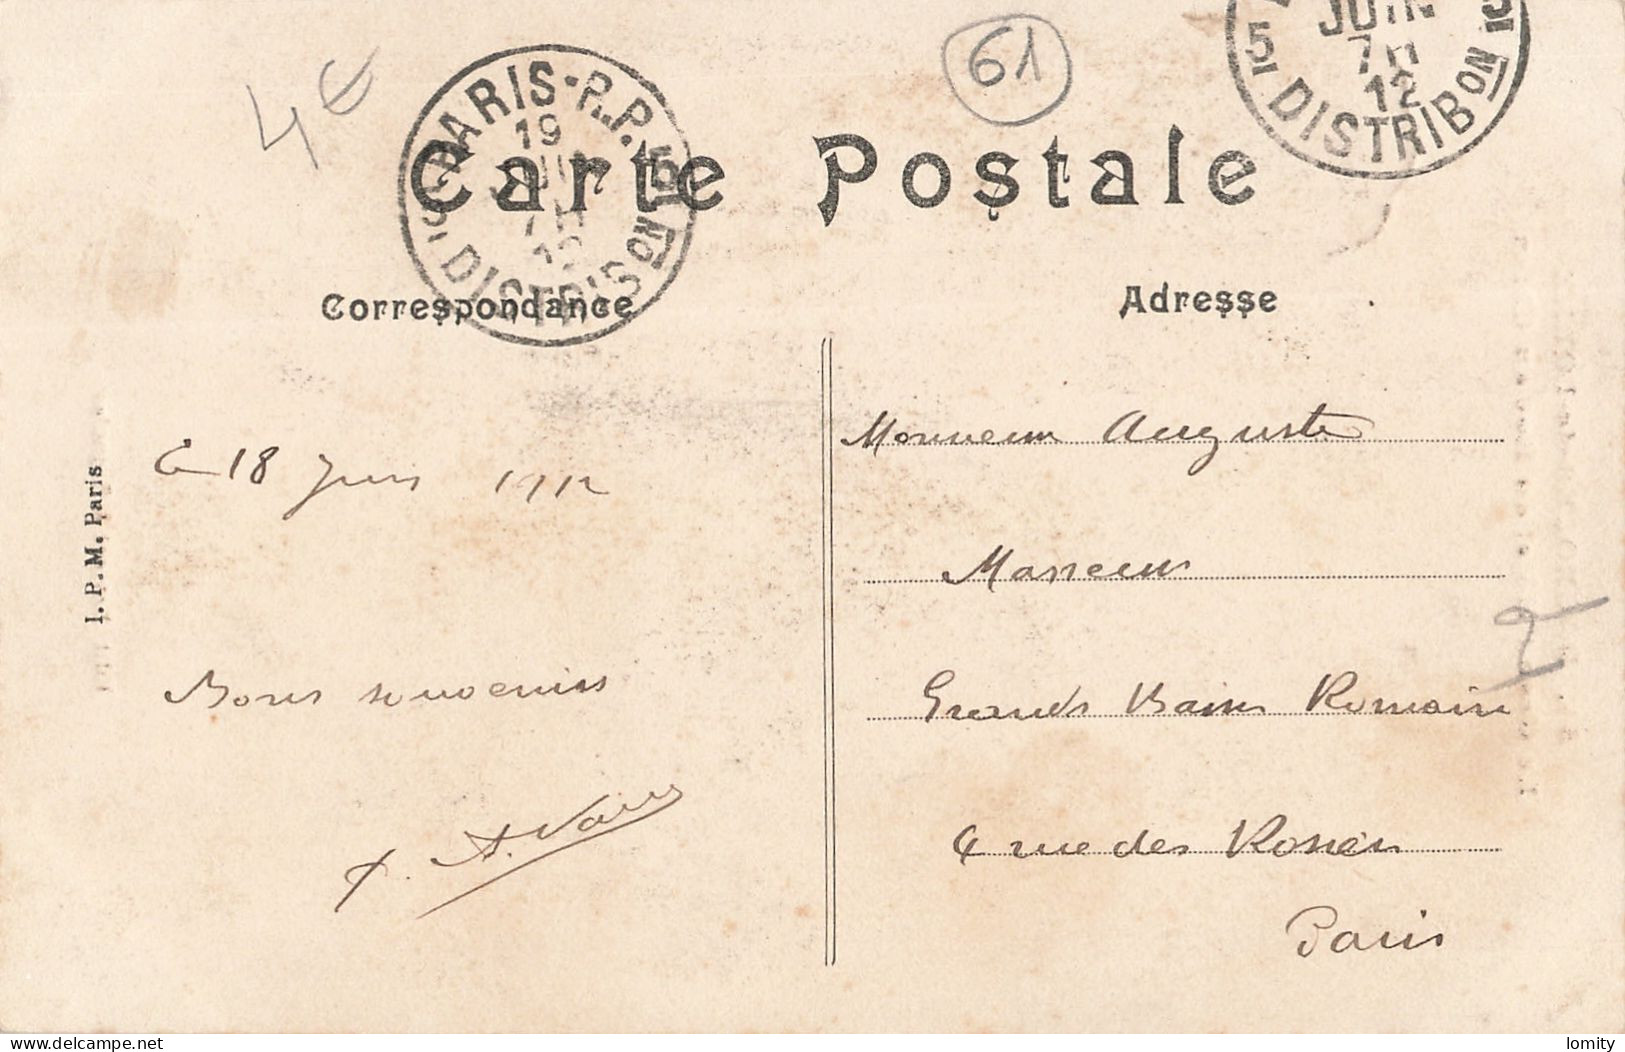 4€
61
PARIS-R.P.
19
JUIN
7H
12
DISTRIB
5I
JUIN
7H
12
5I DISTRIBON
Carte Postale
Correspondance
Adresse
I. P. M. Paris
Le 18 Juin 1912
Bons souvenirs
A.
Monsieur Auguste
Masseur
Grands Bains Romain
4 rue des Rosiers
Paris
Delcampe.net
lomity